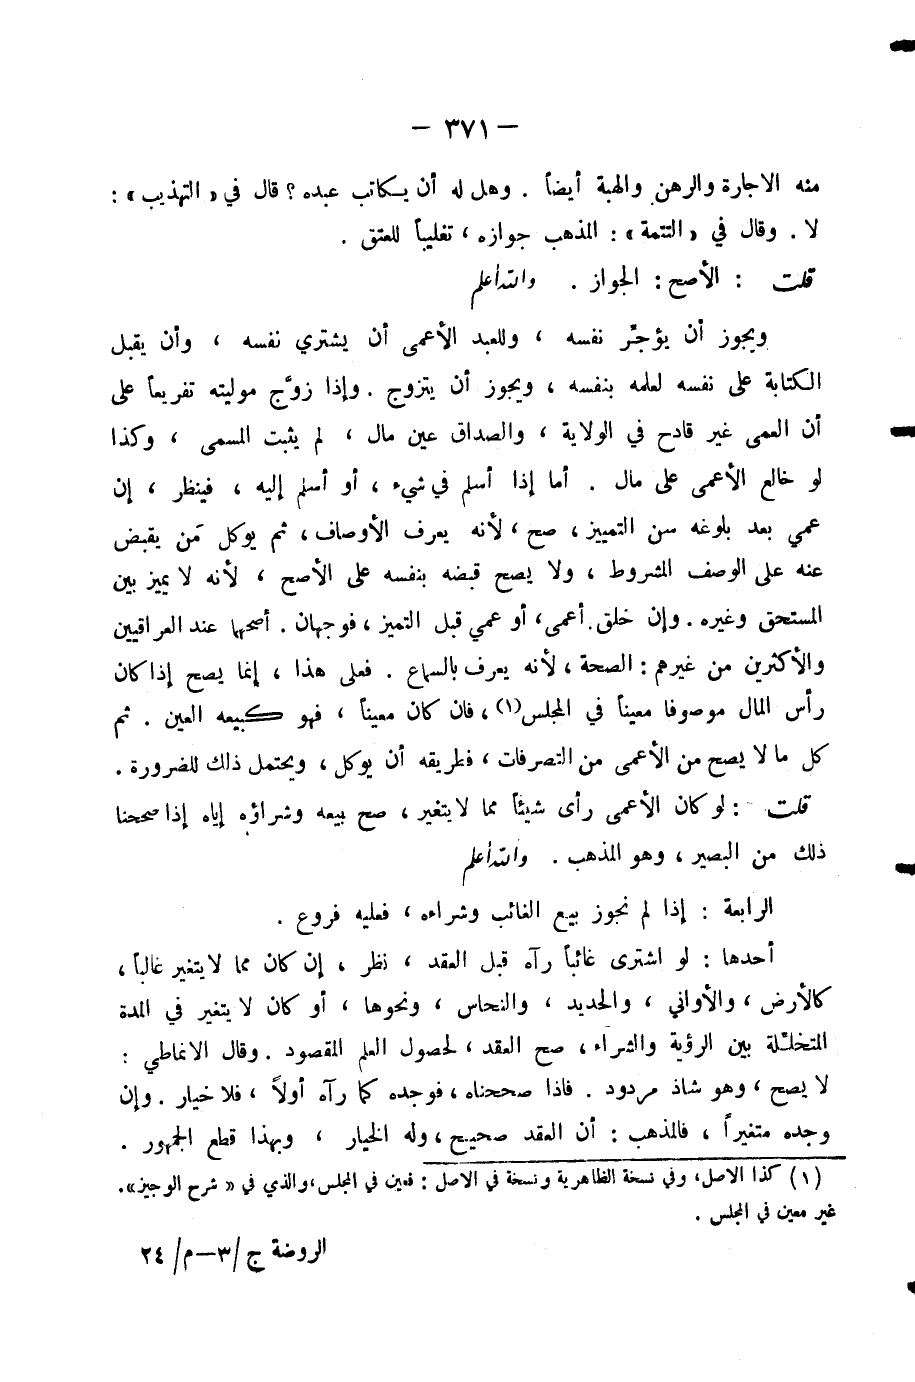 — ٣٧١ —
منه الاجارة والرهن والهبة أيضاً . وهل له أن يكاتب عبده ؟ قال في « التهذيب » :
لا . وقال في « التتمة » : المذهب جوازه ، تغليباً للعتق .
قلت : الأصح : الجواز . والله أعلم
ويجوز أن يؤجِّر نفسه ، وللعبد الأعمى أن يشتري نفسه ، وأن يقبل
الكتابة على نفسه لعلمه بنفسه ، ويجوز أن يتزوج . وإذا زوَّج موليته تفريعاً على
أن العمى غير قادح في الولاية ، والصداق عين مال ، لم يثبت المسمى ، وكذا
لو خالع الأعمى على مال . أما إذا أسلم في شيء ، أو أسلم إليه ، فينظر ، إن
عمي بعد بلوغه سن التمييز ، صح ، لأنه يعرف الأوصاف ، ثم يوكل مَن يقبض
عنه على الوصف المشروط ، ولا يصح قبضه بنفسه على الأصح ، لأنه لا يميز بين
المستحق وغيره . وإن خلق أعمى ، أو عمي قبل التميز ، فوجهان . أصحها عند العراقيين
والأكثرين من غيرهم : الصحة ، لأنه يعرف بالسماع . فعلى هذا ، إنما يصح إذا كان
رأس المال موصوفا معيناً في المجلس (١) ، فان كان معيناً ، فهو كبيعه العين . ثم
كل ما لا يصح من الأعمى من التصرفات ، فطريقه أن يوكل ، ويحتمل ذلك للضرورة .
قلت : لو كان الأعمى رأى شيئاً مما لا يتغير ، صح بيعه وشراؤه إياه إذا صححنا
ذلك من البصير ، وهو المذهب . والله أعلم
الرابعة : إذا لم نجوز بيع الغائب وشراءه ، فعليه فروع .
أحدها : لو اشترى غائباً رآه قبل العقد ، نظر ، إن كان مما لا يتغير غالباً ،
كالأرض ، والأواني ، والحديد ، والنحاس ، ونحوها ، أو كان لا يتغير في المدة
المتخلّلة بين الرؤية والشراء ، صح العقد ، لحصول العلم المقصود . وقال الانماطي :
لا يصح ، وهو شاذ مردود . فاذا صححناه ، فوجده كما رآه أولاً ، فلا خيار . وإن
وجده متغيراً ، فالمذهب : أن العقد صحيح ، وله الخيار ، وبهذا قطع الجمهور .
(١) كذا الاصل ، وفي نسخة الظاهرية ونسخة في الاصل : فعين في المجلس ، والذي في « شرح الوجيز » .
غير معين في المجلس .
الروضة ج/٣—م/٢٤